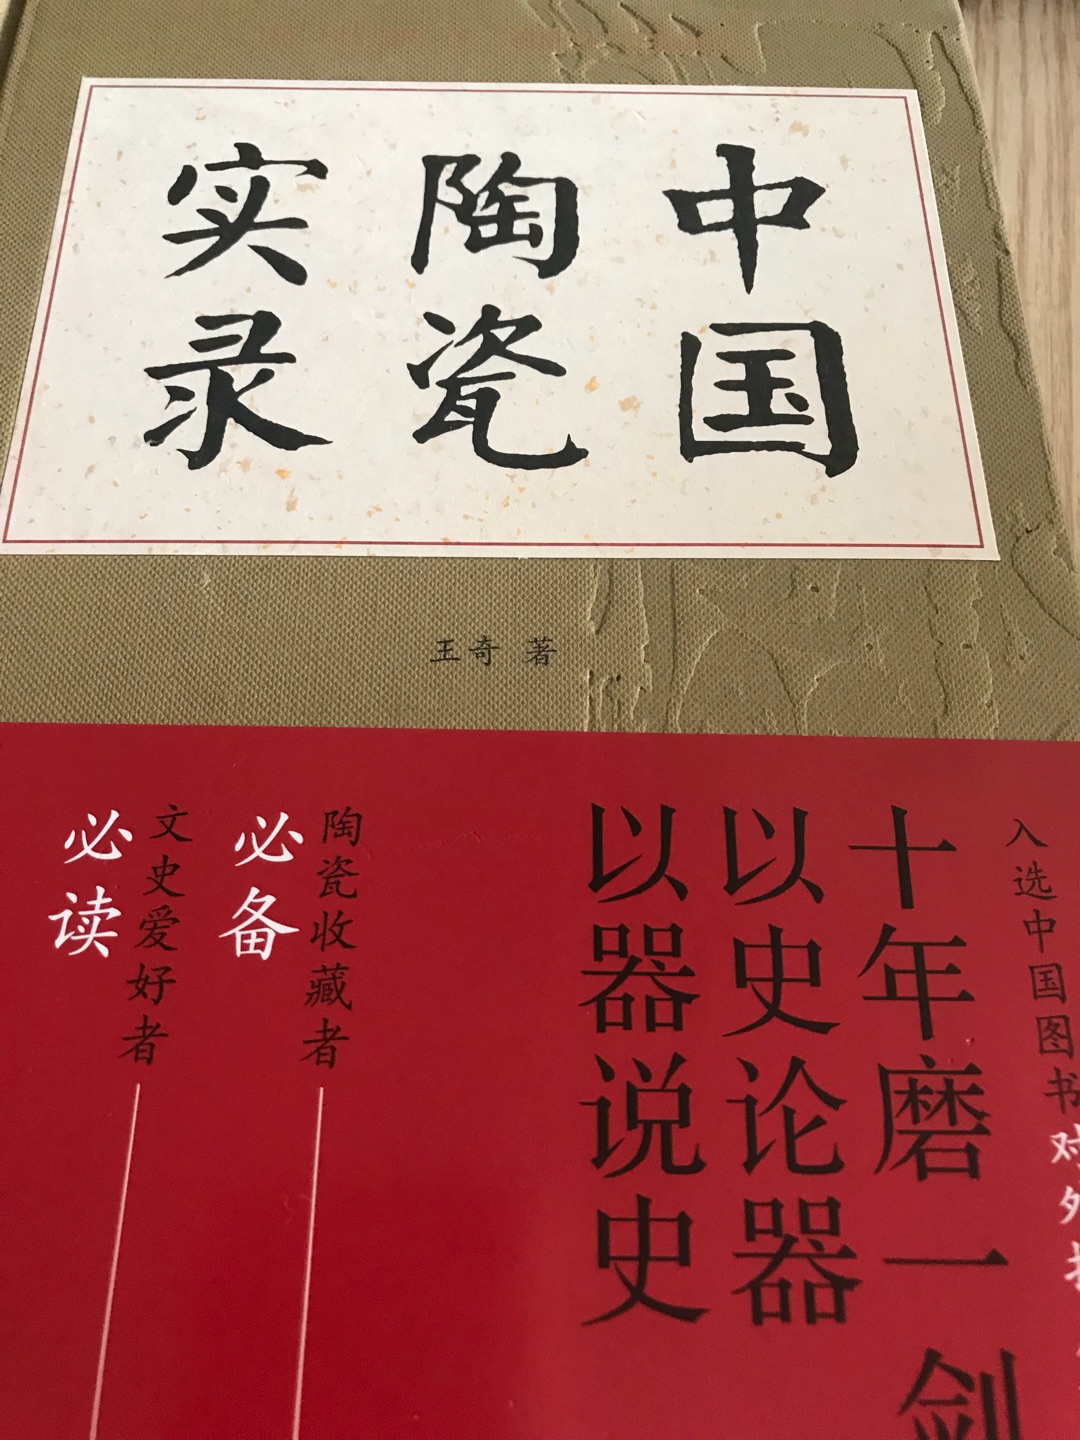 中国
陶瓷
实录
王奇 著
入选中国图书对外
十年磨一剑
以史论器
以器说史
陶瓷收藏者
必备
文史爱好者
必读